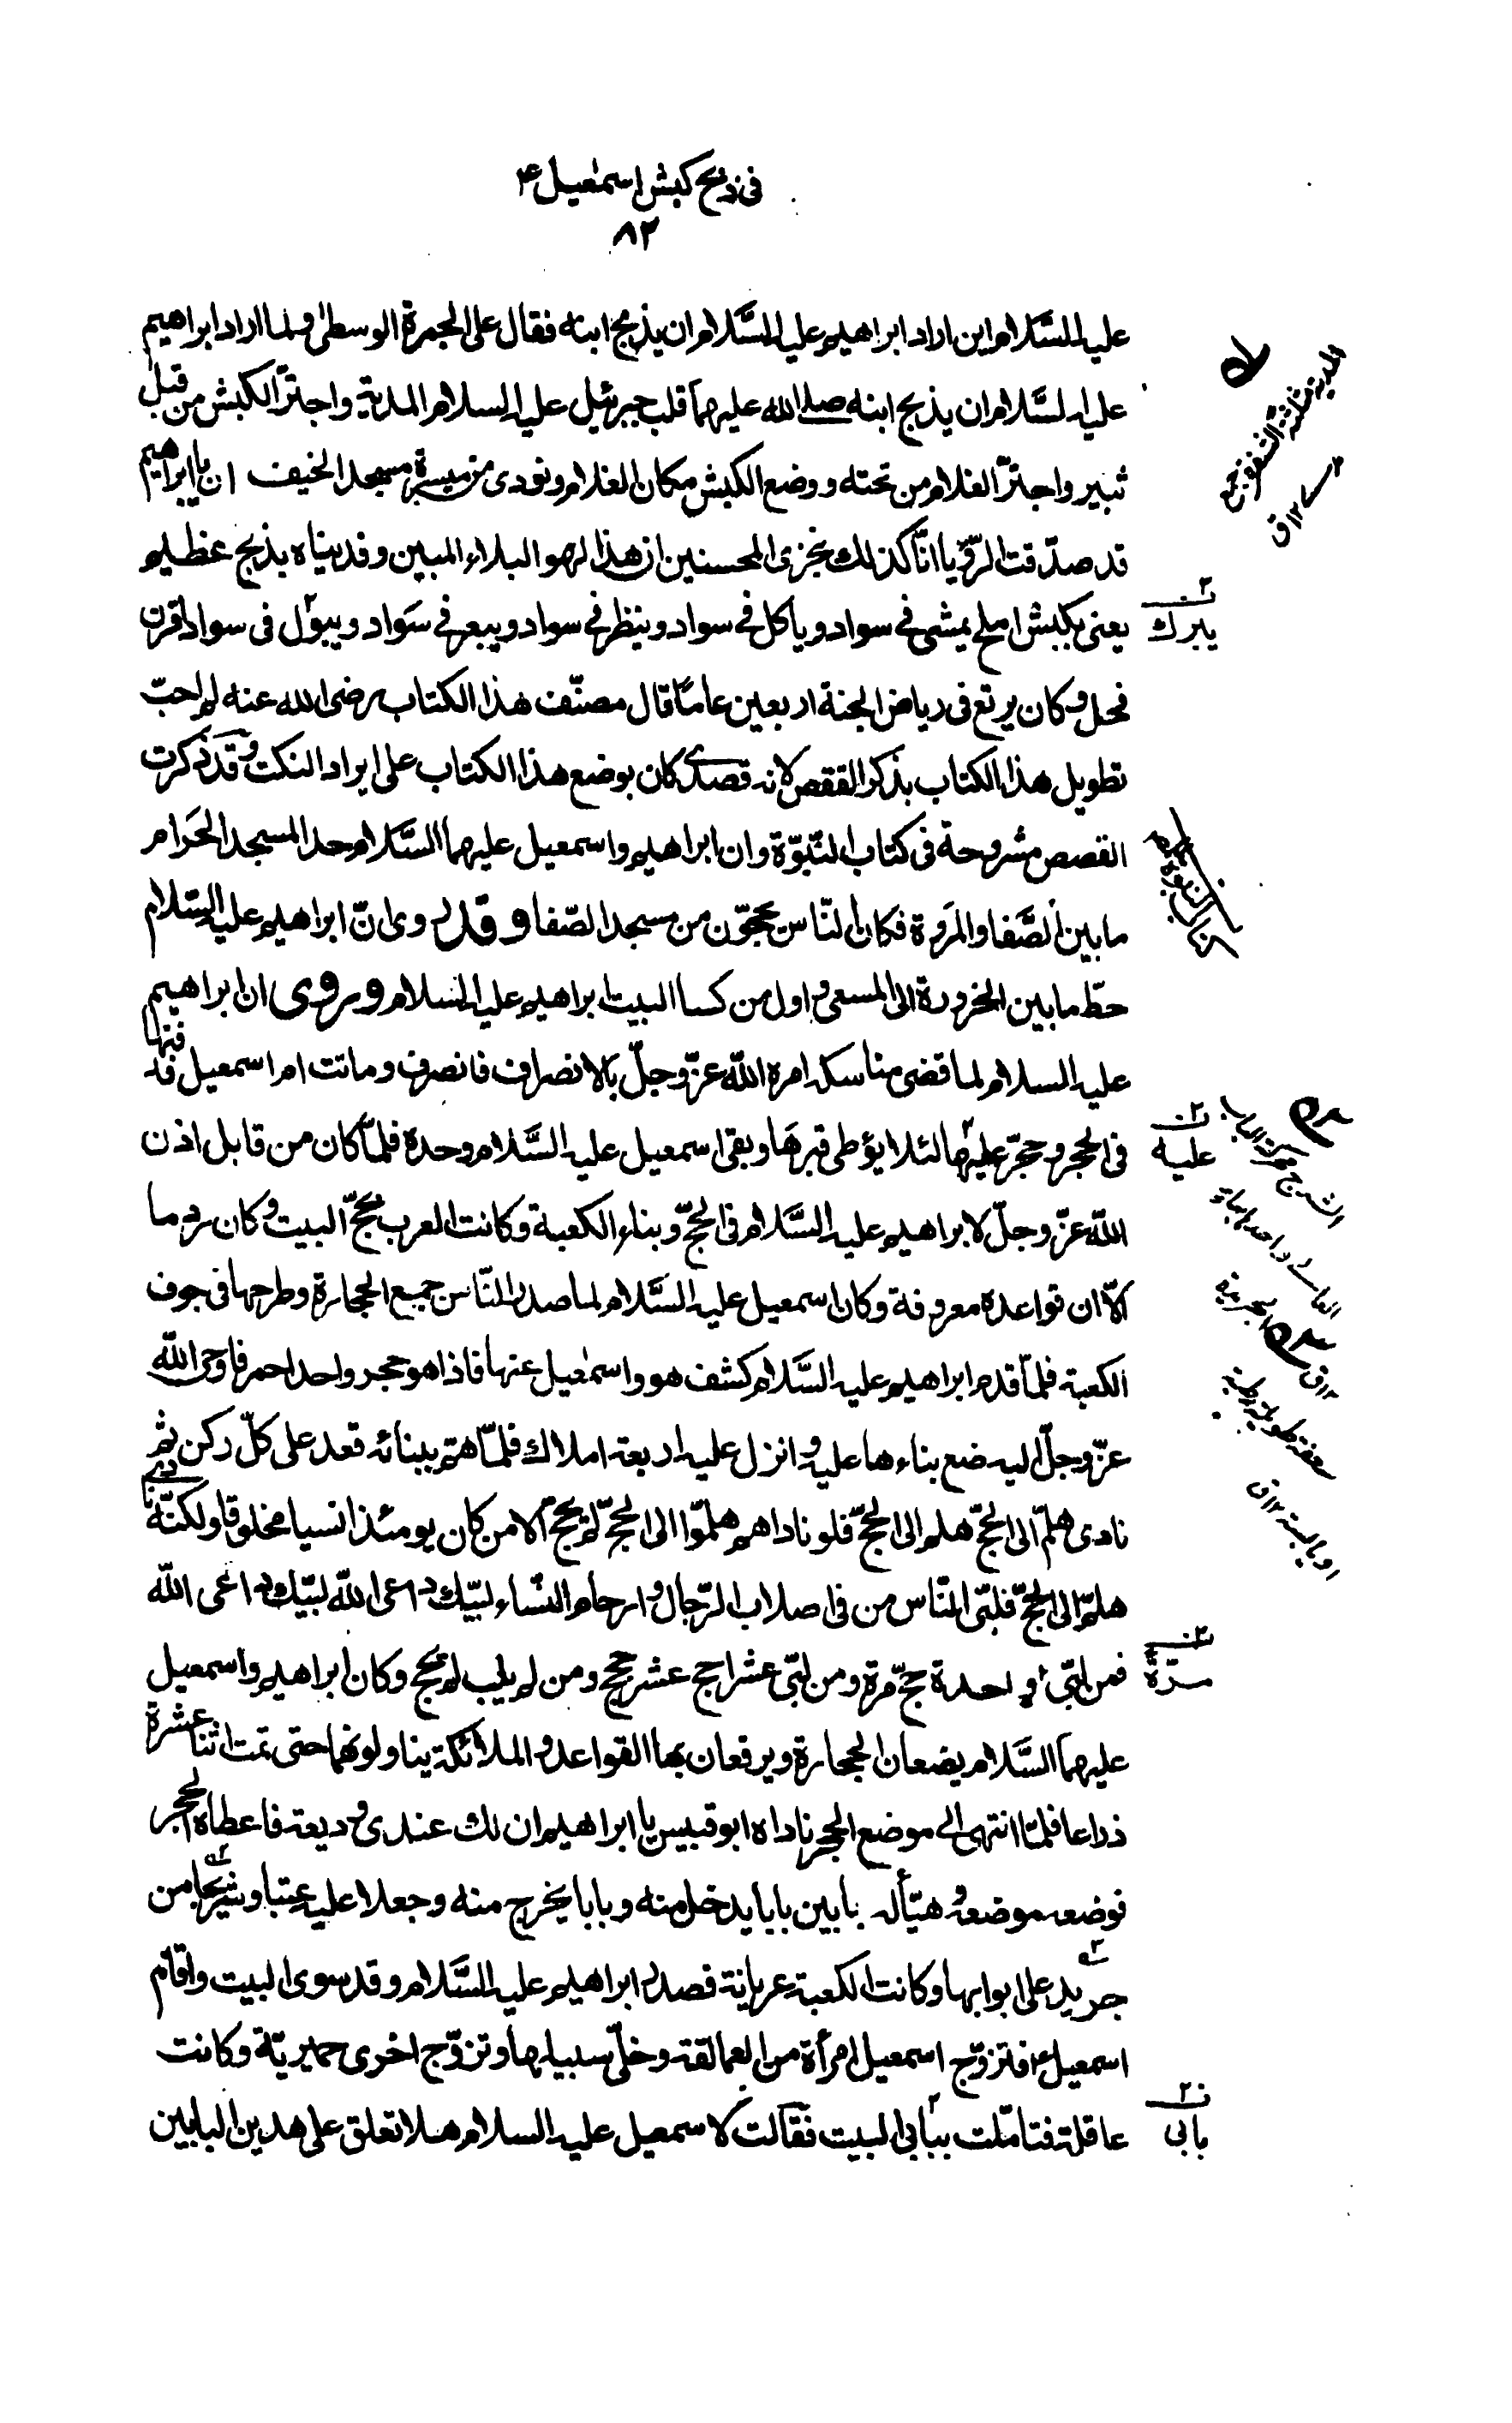 فی ذبح کبش اسمٰعیل ع
٨٢
علیه السَّلام این اراد ابراهیم علیه السَّلام ان یذبح ابنه فقال علی الجمرة الوسطیٰ ولما اراد ابراهیم
علیه السَّلام ان یذبح ابنه صلی الله علیهما قلب جبرئیل علیه السلام المدیة واجترّ الکبش من قبل
ثبیر واجترّ الغلام من تحته ووضع الکبش مکان الغلام ونودی من میسرة مسجد الخیف ان یا ابراهیم
قد صدّقت الرّؤیا انّا کذلك نجزی المحسنین ان هذا لهو البلاء المبین وفدیناه بذبح عظیم
یعنی بکبش املح یمشی فی سواد ویأکل فی سواد وینظر فی سواد ویبعر فی سَواد ویبول فی سواد اقرن
فحل وکان یرتع فی ریاض الجنة اربعین عامًا قال مصنّف هذا الکتاب رضی الله عنه لم احبّ
تطویل هذا الکتاب بذکر القصص لانه قصدی کان بوضع هذا الکتاب علی ایراد النکت وقد ذکرت
القصص مشروحة فی کتاب النّبوّة وان ابراهیم واسمعیل علیهما السَّلام حد المسجد الحَرام
ما بین الصَّفا والمَروة فکان النّاس یحجّون من مسجد الصّفا وقد روی انّ ابراهیم علیه السّلام
خطّ ما بین الخزورة الی المسعی واول من کسا البیت ابراهیم علیه السلام وروی ان ابراهیم
علیه السلام لما قضی مناسکه امره اللّه عزّ وجلّ بالانصراف فانصرف وماتت ام اسمعیل فدفنها
فی الحجر وحجّر علیها لئلا یؤطی قبرهَا وبقی اسمعیل علیه السَّلام وحده فلمّا کان من قابل اذن
اللّه عزّ وجلّ لابراهیم علیه السَّلام فی الحجّ وبناء الکعبة وکانت العرب تحجّ البیت وکان ردما
الّا ان قواعده معروفة وکان اسمعیل علیه السَّلام لما صدر النّاس جمیع الحجارة وطرحها فی جوف
الکعبة فلمّا قدم ابراهیم علیه السَّلام کشف هو واسمٰعیل عنها فاذا هو حجر واحد احمر فاوحی اللّه
عزّ وجلّ الیه ضع بناءها علیه وانزل علیه اربعة املاك فلمّا همّ ببنائه قعد علی کلّ رکن ثم
نادی هلمّ الی الحجّ هلم الی الحجّ فلو ناداهم هلمّوا الی الحجّ لم یحجّ الّا من کان یومئذ انسیا مخلوقا ولکنّه نادی
هلمّ الی الحجّ فلبّی النّاس من فی اصلاب الرّجال وارحام النّساء لبّیك داعی اللّه لبّیك داعی اللّه
فمن لبّی واحدة حجّ مرّة ومن لبّی عشرا حج عشر حجج ومن لم یلب لم یحج وکان ابراهیم واسمعیل
علیهما السَّلام یضعان الحجارة ویرفعان بها القواعد والملائکة یناولونهما حتی تمت اثنا عشرة
ذراعا فلمّا انتهی الی موضع الحجر ناداه ابو قبیس یا ابراهیم ان لك عندی ودیعة فاعطاه الحجر
فوضعه موضعه وهیّأ له بابین بابا یدخل منه وبابا یخرج منه وجعلا علیه عتبا وشریجا من
جرید علی ابوابها وکانت الکعبة عریانة فصدر ابراهیم علیه السَّلام وقد سوی البیت واقام
اسمعیل ع فتزوّج اسمعیل امرأة من العمالقة وخلّی سبیلها وتزوّج اخری حمیریّة وکانت
عاقلة فتأمّلت ببابی البیت فقالت لاسمعیل علیه السلام هلا تعلق علی هذین البابین
المدیة مثلثة الشفرة
یبرك
کتاب النبوة
علیه
مرّة
بابی